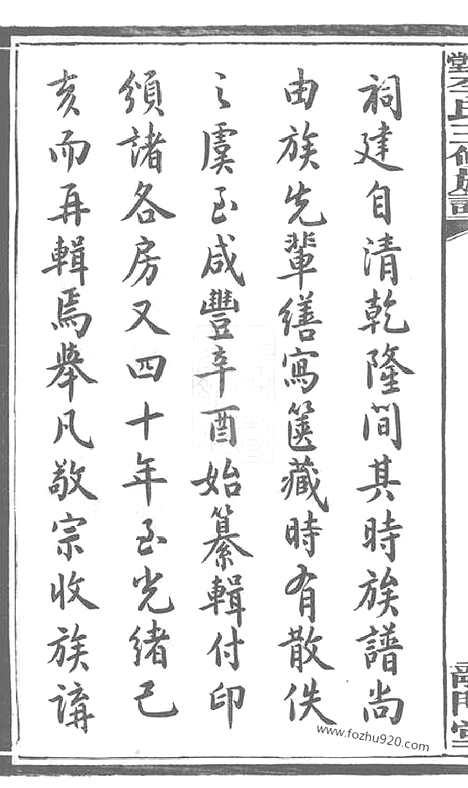 祠建自清乾隆間其時族譜尚
由族先輩繕寫篋藏時有散佚
之虞至咸豐辛酉始纂輯付印
頒諸各房又四十年至光緒己
亥而再輯焉舉凡敬宗收族講
www.fozhu920.com